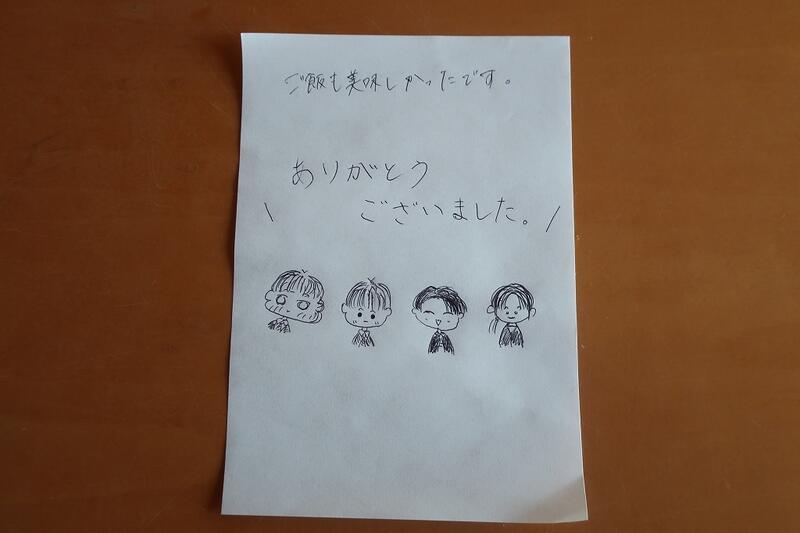 ご飯も美味しかったです。
ありがとう
\ ございました。/